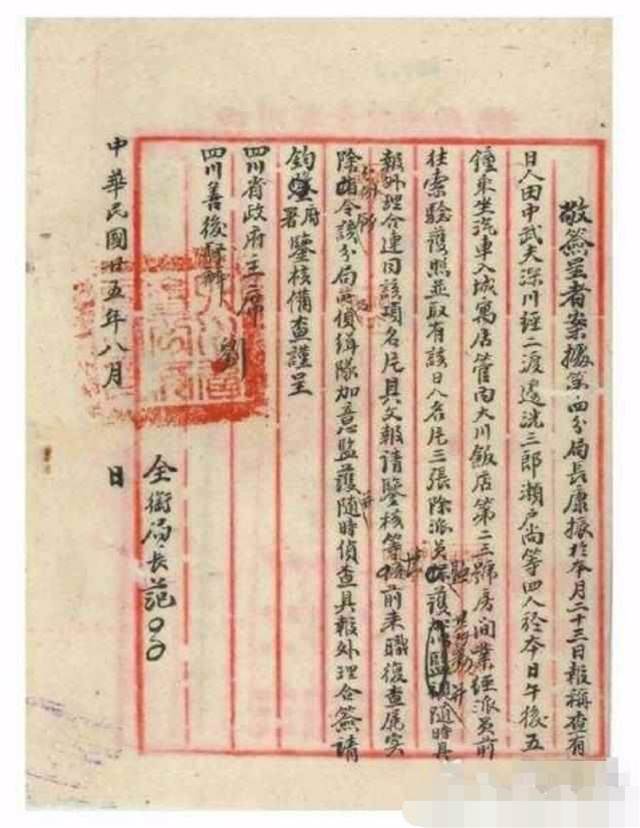 敬簽呈者案據第四分局長康振於本月二十三日報稱查有
日人田中武夫深川經二渡邊洸三郎瀨戶尚等四人於本日午後五
鐘乘坐汽車入城寓店管內大川飯店第二三號房間業經派員前
往索驗護照並取有該日人名片三張除派員護監隨時具
報外理合連同該項名片具文報請鑒核等前來職復查屬實
除令該分局偵緝隊加意監護隨時偵查具報外理合簽請
鈞府署鑒核備查謹呈
四川省政府主席 劉
四川善後督辦
全銜局長范〇〇
中華民國廿五年八月 日